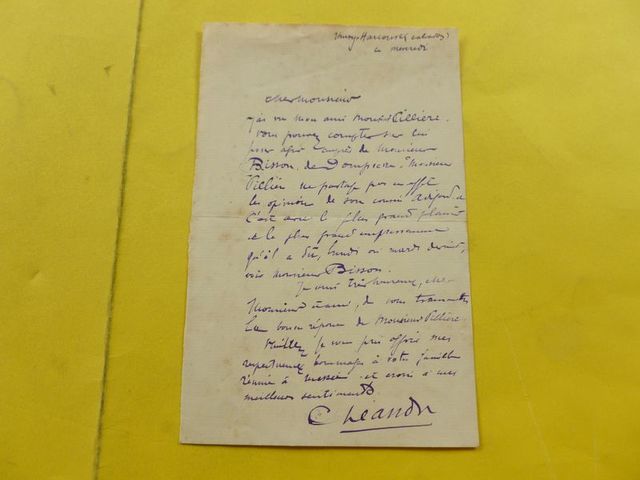 Thury-Harcourt (calvados)
ce mercredi
cher monsieur
J'ai vu mon ami Monsr Tillière.
Vous pouvez compter sur lui
pour agir auprès de Monsieur
Bisson, de Dompierre. Monsieur
Tillière ne partage pas en effet
les opinions de son cousin
C'est avec le plus grand plaisir
et le plus grand empressement
qu'il a dû, lundi ou mardi dernier,
voir Monsieur Bisson.
Je suis très heureux, cher
Monsieur et ami, de vous transmettre
la bonne réponse de Monsieur Tillière.
Veuillez, je vous prie offrir mes
respectueux hommages à votre famille
réunie à et croire à mes
meilleurs sentiments.
Ch Léandre